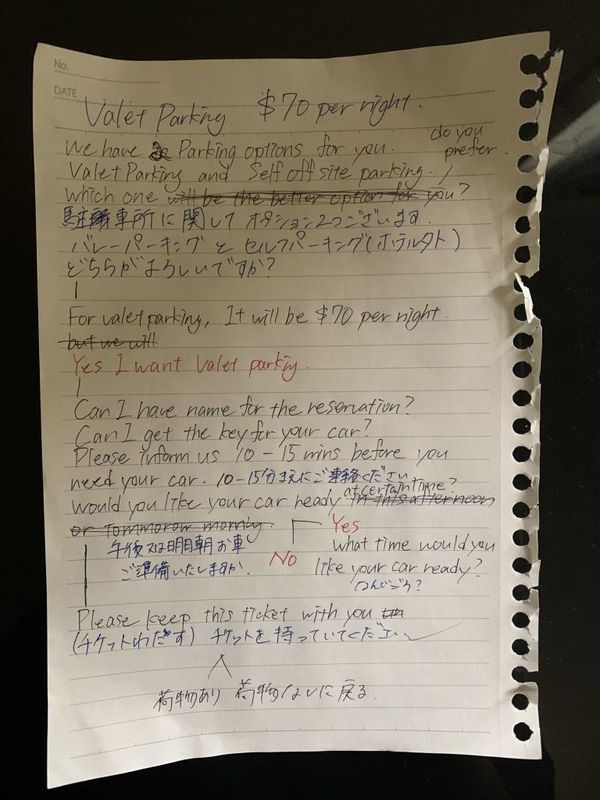 No.
DATE
Valet Parking $70 per night.
We have 2 Parking options for you. do you
Valet Parking and Self off site parking. prefer.
which one will be the better option for you?
駐車所に関して オプション2つございます.
バレーパーキング と セルフパーキング(ホテル外)
どちらがよろしいですか?
For valet parking, It will be $70 per night.
but we will
Yes I want Valet parking.
Can I have name for the reservation?
Can I get the key for your car?
Please inform us 10-15 mins before you
need your car. 10-15分まえにご連絡ください
at certain time?
would you like your car ready in this afternoon
or tommorow morning.
Yes
午後又は明日朝 お車
what time would you
ご準備いたしますか.
No
like your car ready?
なんじごろ?
Please keep this ticket with you
(チケットわたす) チケットを持っていてください
荷物あり 荷物なしに戻る.